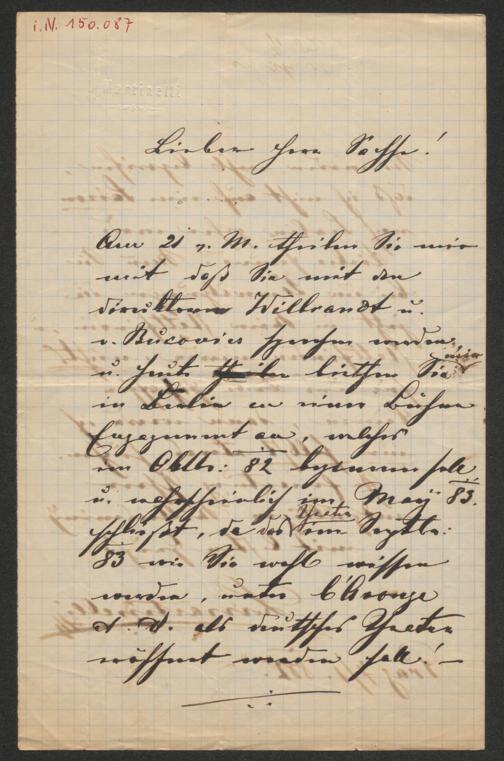 i.N. 150.087
Martinelli
Lieber Herr Sachse!
Am 21 v. M. theilen Sie mir
mit daß Sie mit den
Direktoren Wilbrandt u.
v. Bucovics sprechen werden
u. heute biethen Sie mir
in Berlin an einer Bühne
Engagement an, welches
im Oktb: 82 beginnen soll
u. wahrscheinlich im May 83.
schließt, da das Theater im Septb:
83 wie Sie wohl wissen
werden, unter L'Arronge
als deutsches Theater
eröffnet werden soll! –